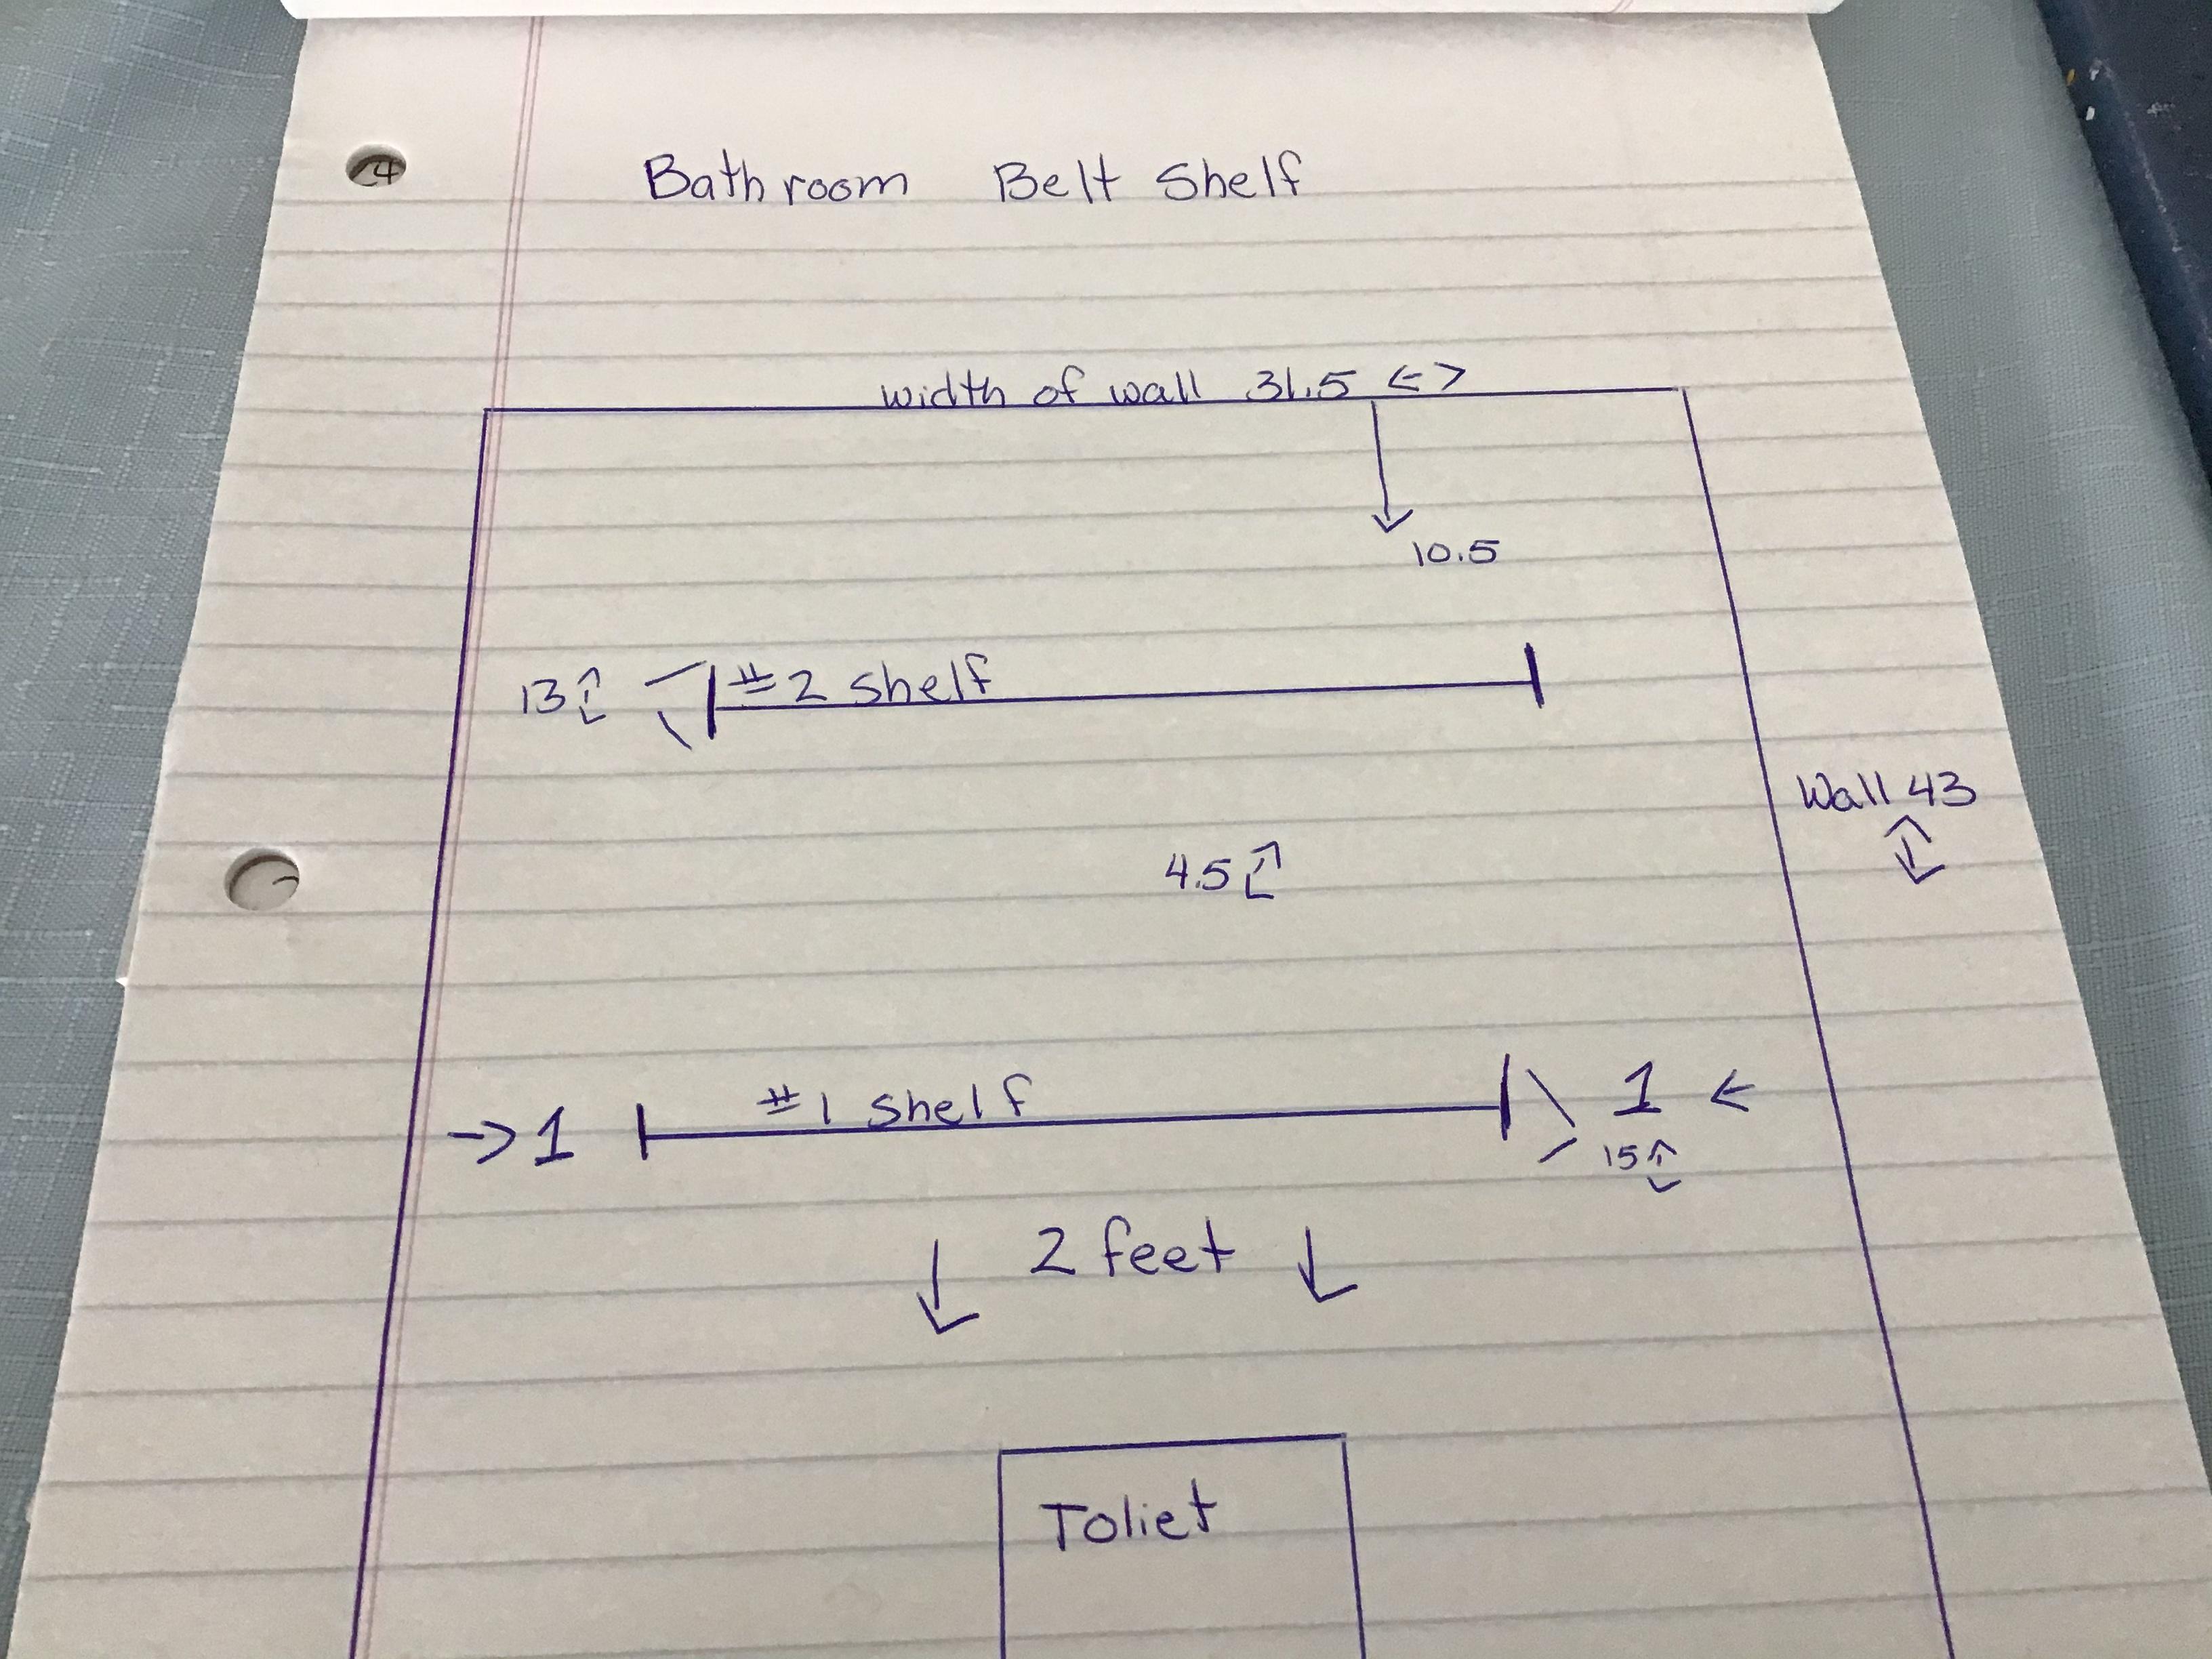 Bathroom Belt Shelf
width of wall 31.5 <->
10.5
13
#2 shelf
Wall 43
4.5
-> 1
#1 shelf
1 <-
15
2 feet
Toliet